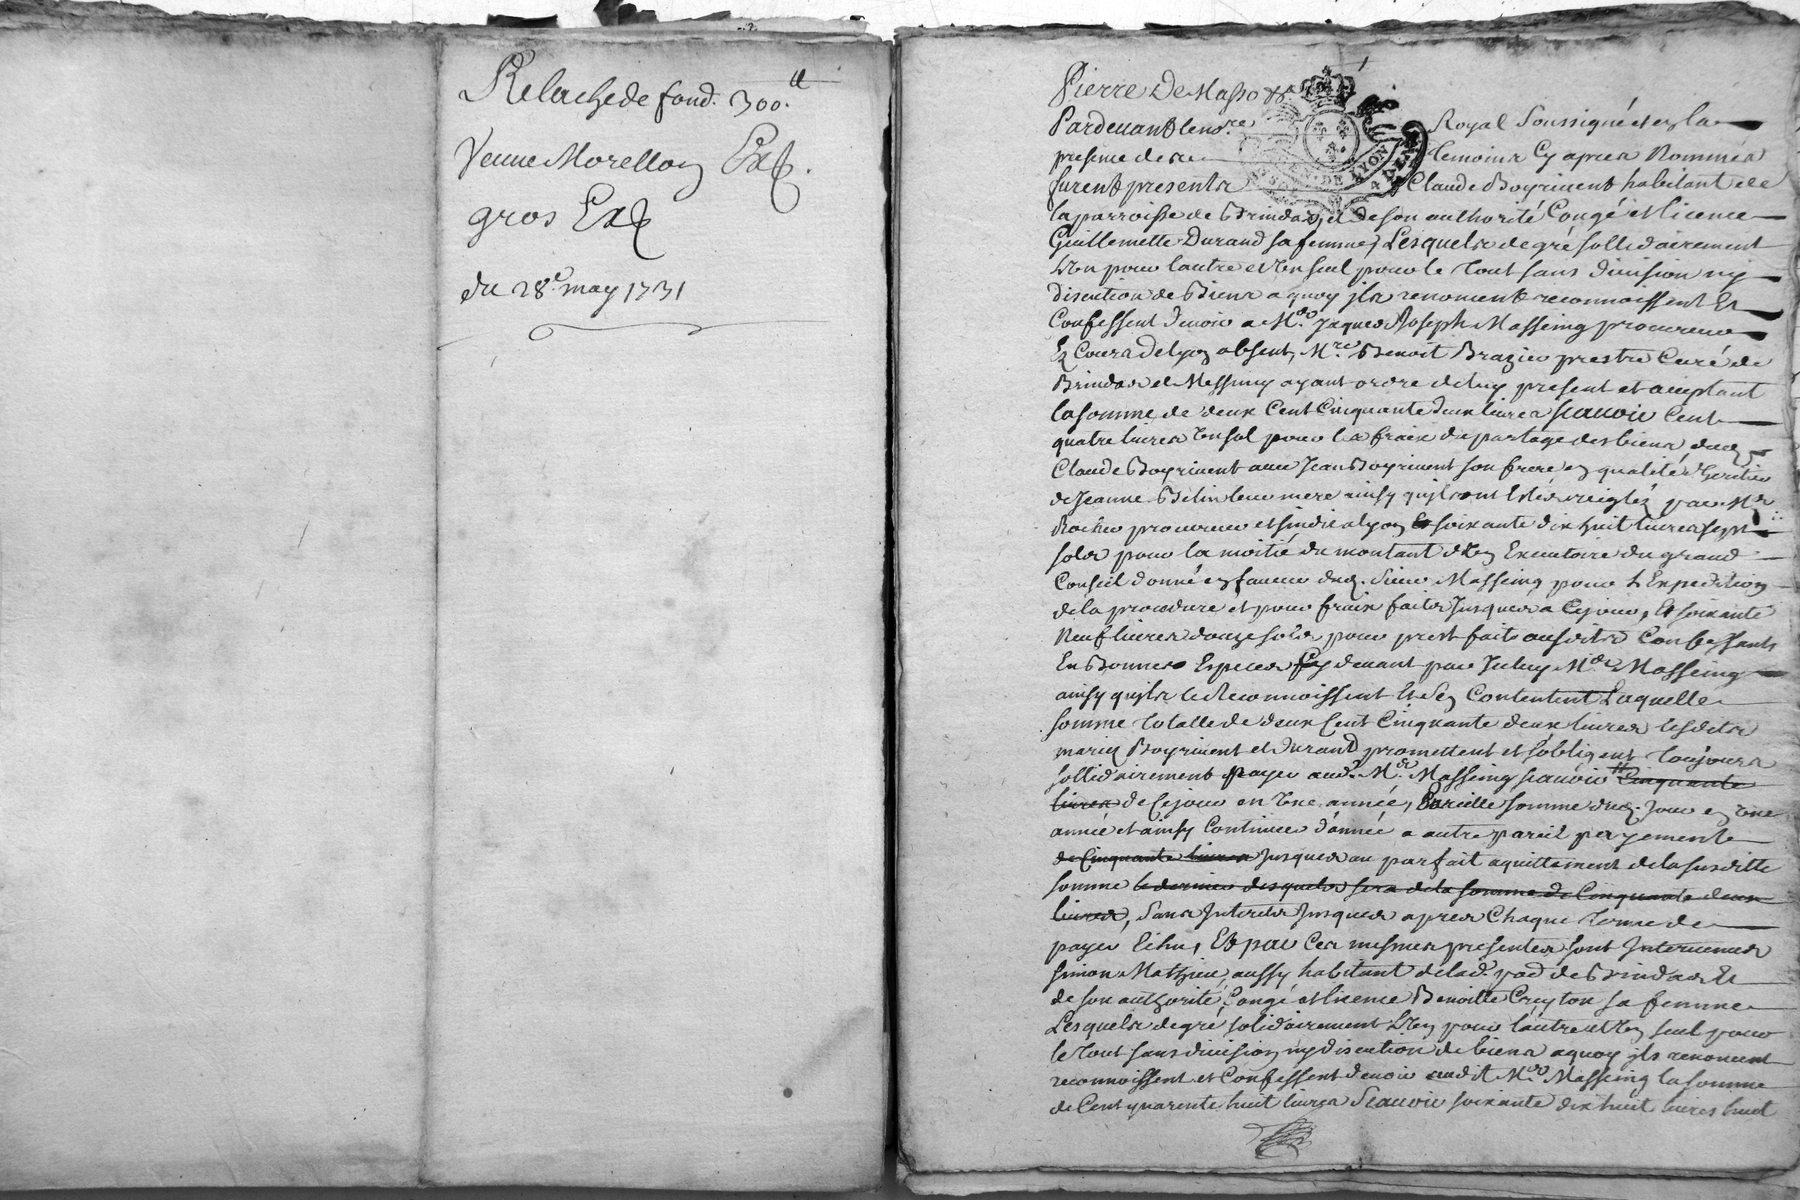 Relache de fond. 300.ll
Veuve Morellon Exp.
gros Exp
du 28e may 1731
Pierre De Masso
Pardevant le no.re Royal Soussigné et en la
presence de temoins Cy apres Nommés
furent presents Claude Boyrivent habitant de
la parroisse de Brindas, et de son authorité Congé et licence
Guillemette Durand sa femme, Lesquels de gré sollidairement
L'un pour lautre et L'un seul pour le Tout sans division ny
discution de Biens a quoy ils renoncent reconnoissent Et
Confessent devoir a M.e Jaques Joseph Masseing procureur
Ez Cours de Lyon absent, M.re Benoit Brazier prestre Curé de
Brindas et Messimy ayant ordre de luy present et acceptant
la somme de deux Cent Cinquante deux livres scauoir Cent
quatre livres Un sol pour les fraix du partage des biens dud.
Claude Boyrivent avec Jean Boyrivent son frere en qualité d'heritiers
de Jeanne leur mere ainsy qu'ils ont Estés reiglés par M.e
procureur et sindic a Lyon Et soixante dix huit livres sept
sols pour la moitié du montant d'Un Executoire du grand
Conseil donné en faveur dud. Sieur Masseing pour L'Expedition
de la procedure et pour fraix faits Jusques a Cejour, Et soixante
Neuf livres douze sols pour prest fait ausdits Confessants
En Bonnes Especes Cy devant par Iceluy M.e Masseing
ainsy qu'ils le Reconnoissent Et s'en Contentent Laquelle
somme Totalle de deux Cent Cinquante deux livres lesdits
mariez Boyrivent et Durand promettent et s'obligent Toujours
sollidairement payer aud. M.e Masseing scauoir Cinquante
livres de Cejour en Une année, Pareille somme dud. Jour en Une
année et ainsy Continuer d'année a autre pareil payement
de Cinquante livres Jusques au parfait aquittement de la susditte
somme le dernier desquels sera de la somme de Cinquante deux
livres, Sans Interets Jusques apres Chaque Terme de
payer Echu, Et par Ces mesmes presentes sont Intervenus
Simon Mathieu aussy habitant de lad. par. de Brindas Et
de son authorité Congé et licence Benoitte Creyton sa femme
Lesquels de gré solidairement L'Un pour l'autre et Un seul pour
le Tout sans division ny discution de biens a quoy ils renoncent
reconnoissent et Confessent devoir audit M.e Masseing la somme
de Cent quarente huit livres Scauoir soixante dix huit livres huit